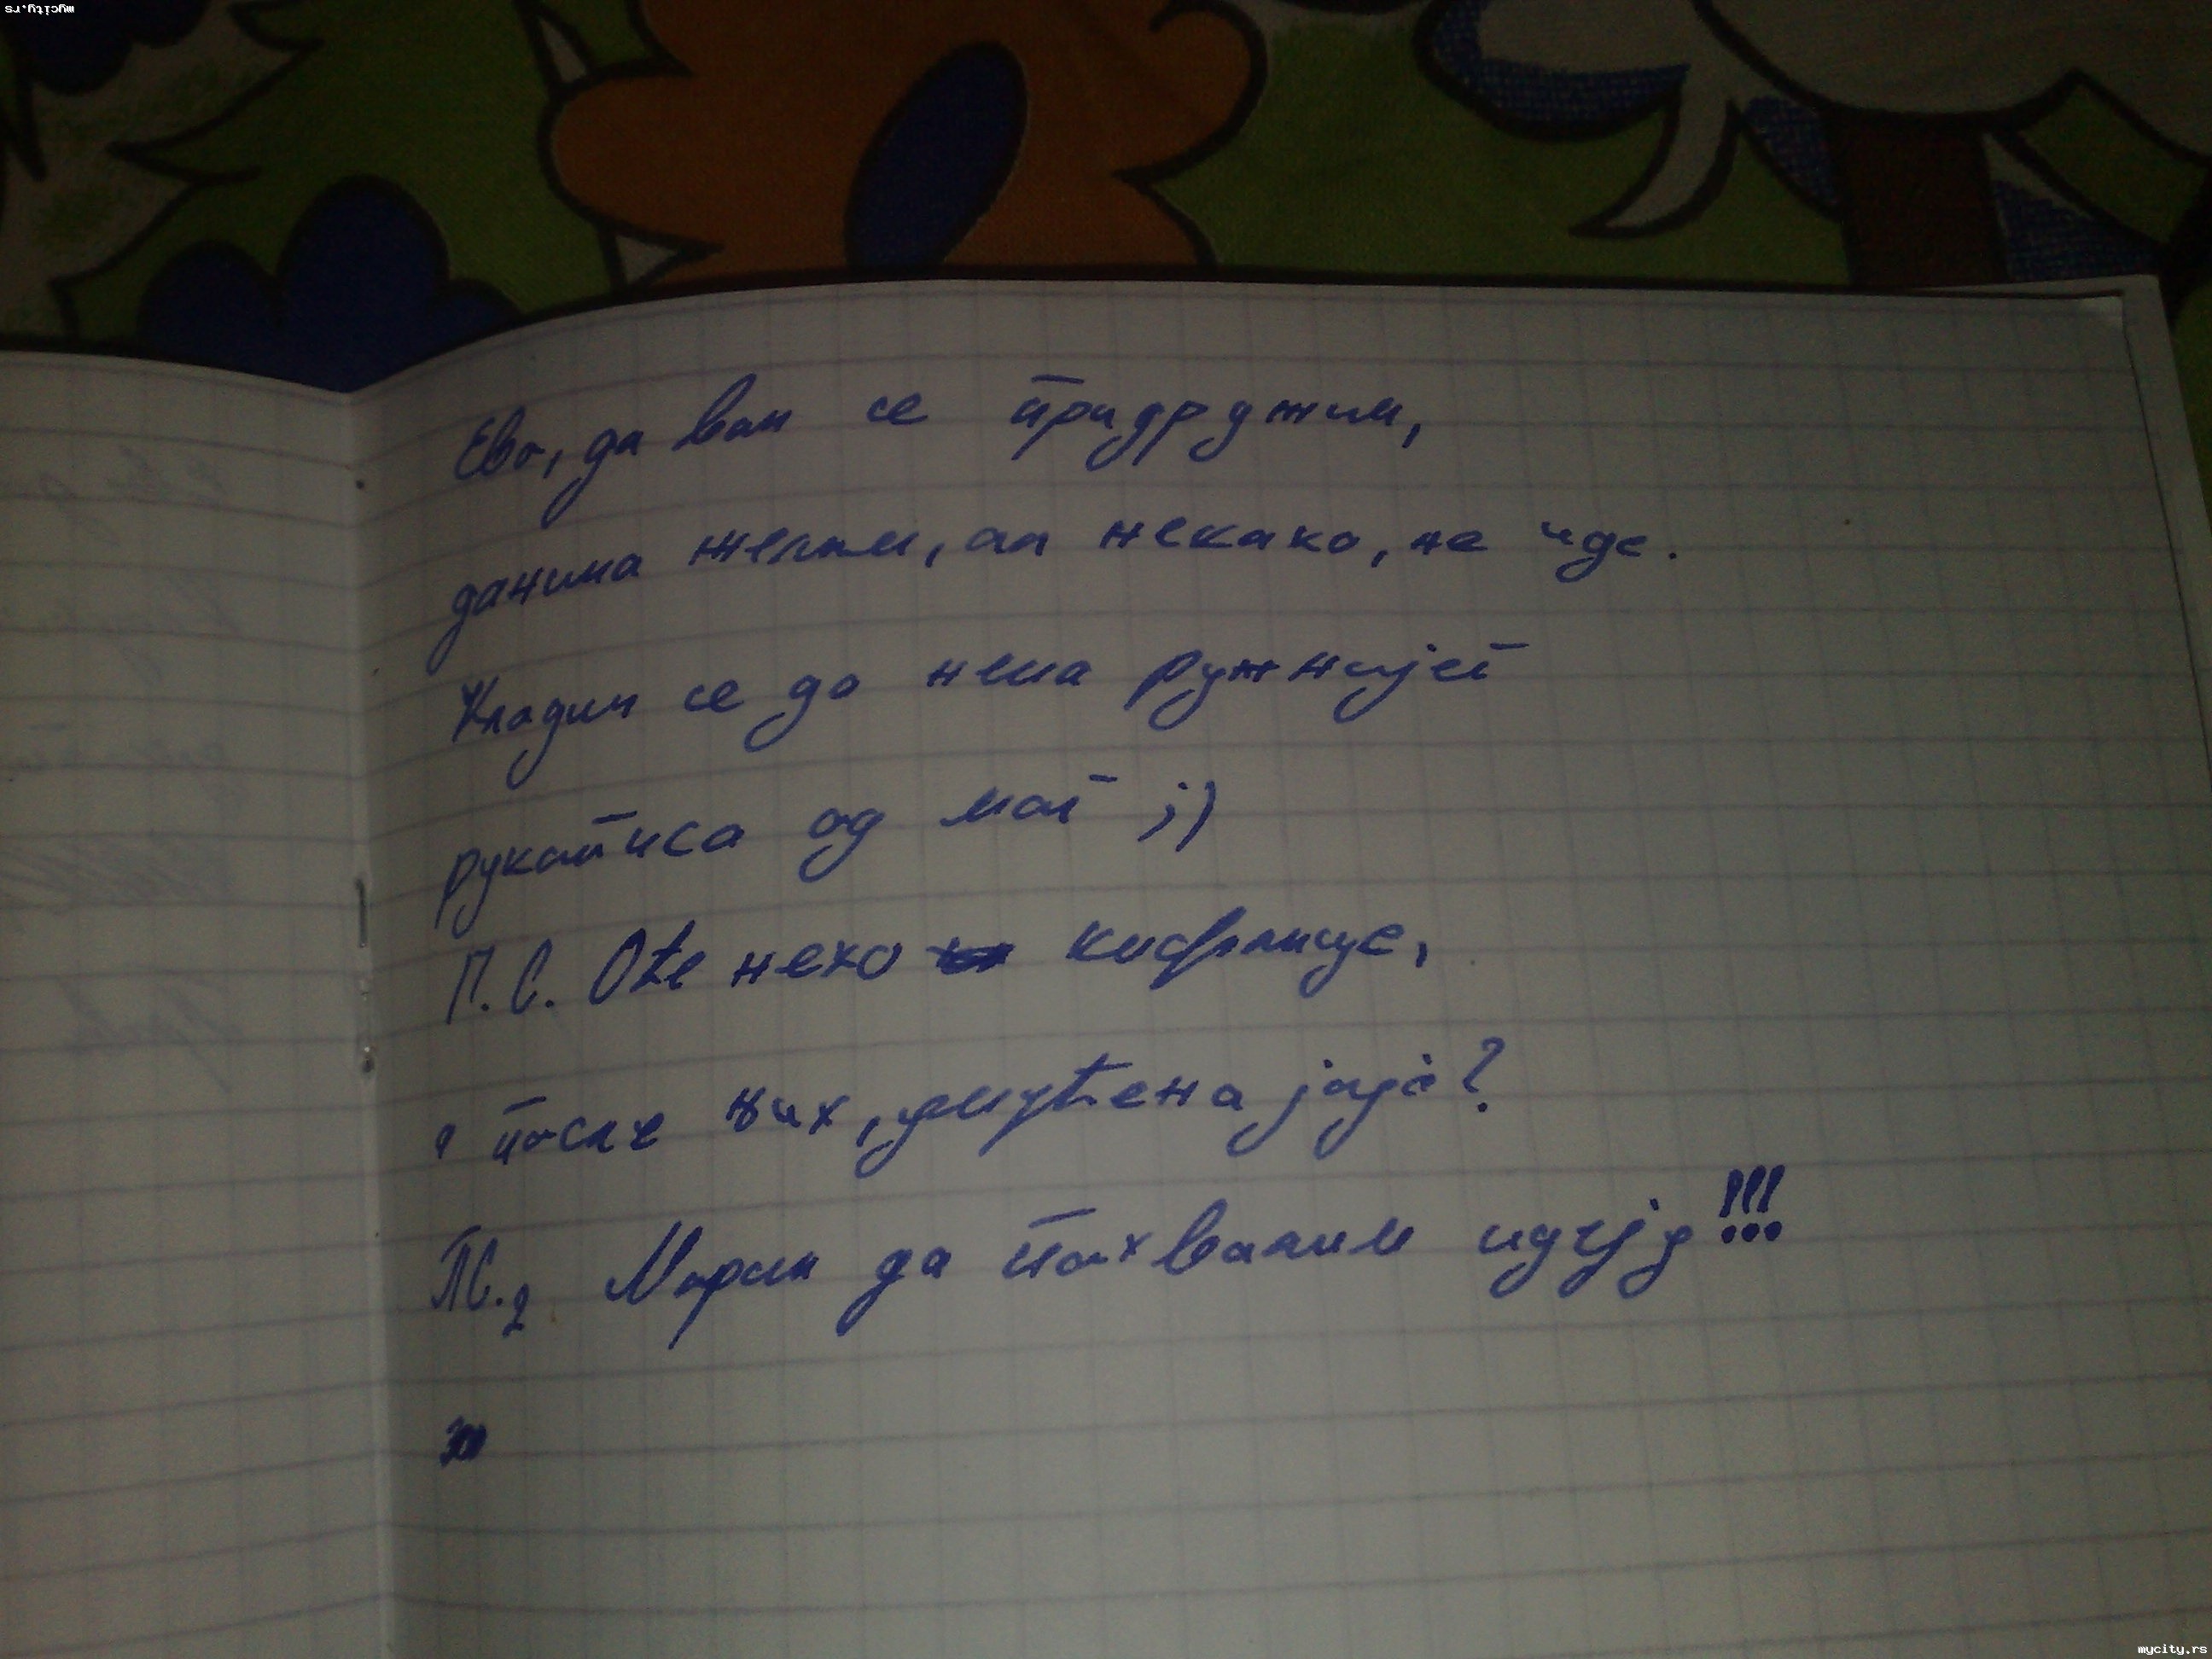 mycity.rs
Ево, да вам се придружим,
данима желим, ал некако, не иде.
Кладим се да нема ружнијег
рукописа од мог ;)
П.С. Оће неко кифлице,
и после њих, умућена јаја?
ПС.2 Морам да похвалим идеју!!!
mycity.rs